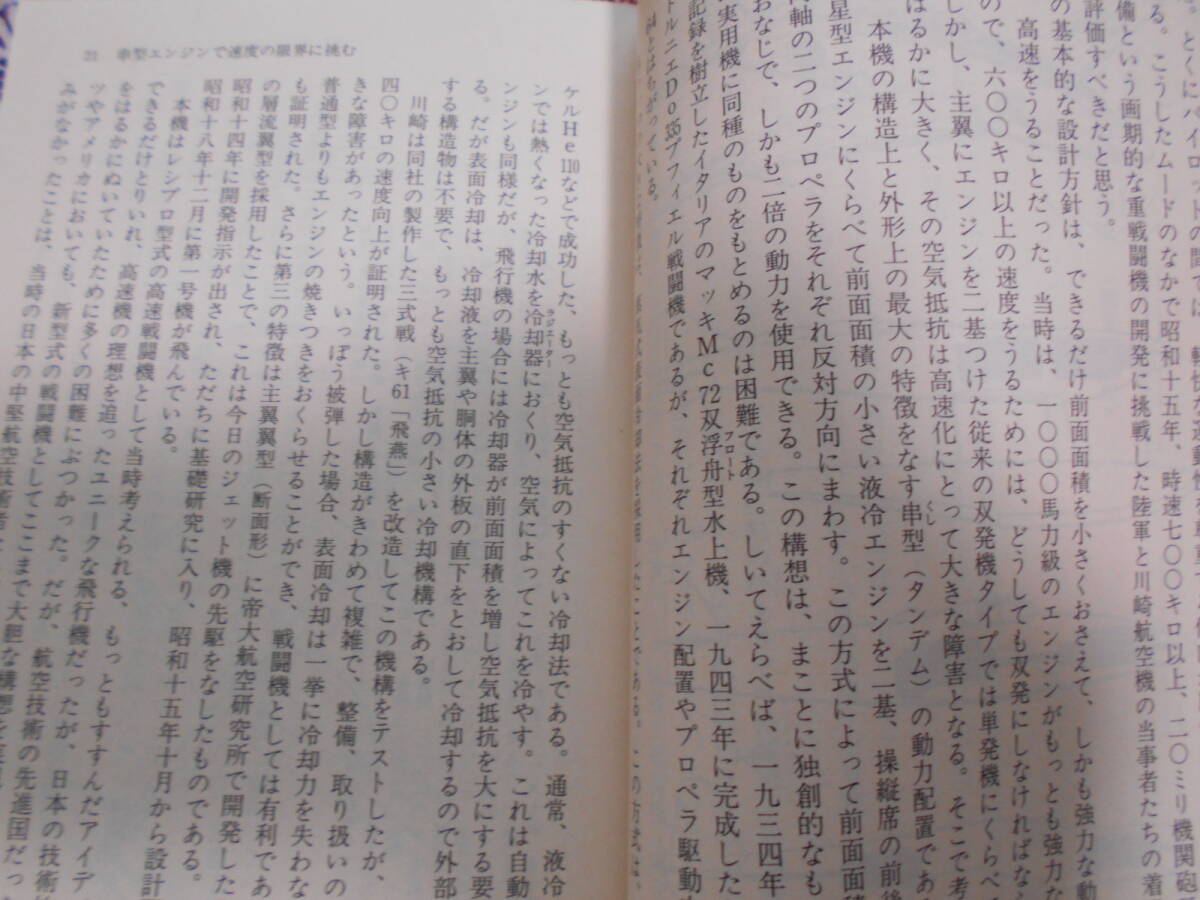 備という画期的な重戦闘機の開発に挑戦した陸軍と川崎航空機の当事者たちの着
評価すべきだと思う。
の基本的な設計方針は、できるだけ前面面積を小さくおさえて、しかも強力な動
高速をうることだった。当時は、一〇〇〇馬力級のエンジンがもっとも強力な
ので、六〇〇キロ以上の速度をうるためには、どうしても双発にしなければなら
しかし、主翼にエンジンを二基つけた従来の双発機タイプでは単発機にくらべ
はるかに大きく、その空気抵抗は高速化にとって大きな障害となる。そこで考
本機の構造上と外形上の最大の特徴をなす串型（タンデム）の動力配置であ
星型エンジンにくらべて前面面積の小さい液冷エンジンを二基、操縦席の前後
軸の二つのプロペラをそれぞれ反対方向にまわす。この方式によって前面面積
おなじで、しかも二倍の動力を使用できる。この構想は、まことに独創的なも
実用機に同種のものをもとめるのは困難である。しいてえらべば、一九三四年
記録を樹立したイタリアのマッキMc72双浮舟型水上機、一九四三年に完成した
フロート
ドルニエDo335プフィエル戦闘機であるが、それぞれエンジン配置やプロペラ駆動
64とはちがっている。
21 串型エンジンで速度の限界に挑む
ケルHe110などで成功した、もっとも空気抵抗のすくない冷却法である。通常、液冷
ンでは熱くなった冷却水を冷却器におくり、空気によってこれを冷やす。これは自動
ラジエーター
ンジンも同様だが、飛行機の場合には冷却器が前面面積を増し空気抵抗を大にする要
る。だが表面冷却は、冷却液を主翼や胴体の外板の直下をとおして冷却するので外部
する構造物は不要で、もっとも空気抵抗の小さい冷却機構である。
川崎は同社の製作した三式戦（キ61「飛燕」）を改造してこの機構をテストしたが、
四〇キロの速度向上が証明された。しかし構造がきわめて複雑で、整備、取り扱いの
きな障害があったという。いっぽう被弾した場合、表面冷却は一挙に冷却力を失わな
普通型よりもエンジンの焼きつきをおくらせることができ、戦闘機としては有利であ
も証明された。さらに第三の特徴は主翼翼型（断面形）に帝大航空研究所で開発した
の層流翼型を採用したことで、これは今日のジェット機の先駆をなしたものである。
昭和十四年に開発指示が出され、ただちに基礎研究に入り、昭和十五年十月から設計
昭和十八年十二月に第一号機が飛んでいる。
本機はレシプロ型式の高速戦闘機として当時考えられる、もっともすすんだアイデ
できるだけとりいれ、高速機の理想を追ったユニークな飛行機だったが、日本の技術
をはるかにぬいていたために多くの困難にぶつかった。だが、航空技術の先進国だっ
ツやアメリカにおいても、新型式の戦闘機としてここまで大胆な構想を
みがなかったことは、当時の日本の中堅航空技術者